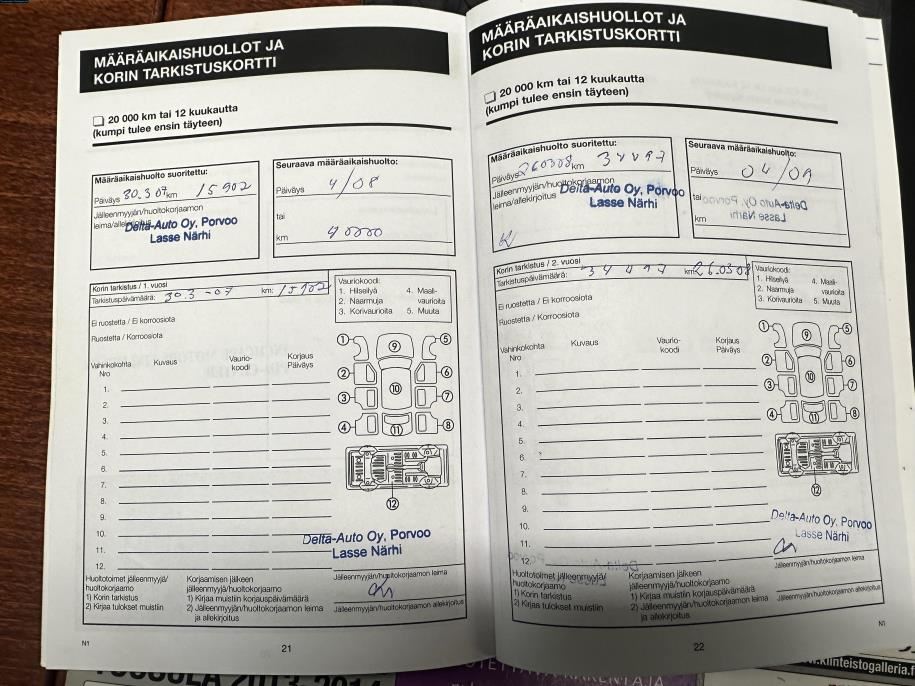 MÄÄRÄAIKAISHUOLLOT JA
KORIN TARKISTUSKORTTI
20 000 km tai 12 kuukautta
(kumpi tulee ensin täyteen)
Määräaikaishuolto suoritettu:
Päiväys 30.3 07 km 15902
Jälleenmyyjän/huoltokorjaamon
leima/allekirjoitus
Delta-Auto Oy, Porvoo
Lasse Närhi
Seuraava määräaikaishuolto:
Päiväys 4/08
tai
km 40000
Korin tarkistus / 1. vuosi
Tarkistuspäivämäärä: 30.3-07 km: 15902
Ei ruostetta / Ei korroosiota
Ruostetta / Korroosiota
Vauriokoodi:
1. Hilseilyä 4. Maali-
2. Naarmuja vaurioita
3. Korivaurioita 5. Muuta
Vahinkokohta Kuvaus Vaurio- Korjaus
Nro koodi Päiväys
1.
2.
3.
4.
5.
6.
7.
8.
9.
10.
11.
12.
1 9 5
2 6
10
3 7
4 11 8
12
Delta-Auto Oy, Porvoo
Lasse Närhi
Huoltotoimet jälleenmyyjä/ Korjaamisen jälkeen Jälleenmyyjän/huoltokorjaamon leima
huoltokorjaamo jälleenmyyjä/huoltokorjaamo
1) Korin tarkistus 1) Kirjaa muistiin korjauspäivämäärä
2) Kirjaa tulokset muistiin 2) Jälleenmyyjän/huoltokorjaamon leima Jälleenmyyjän/huoltokorjaamon allekirjoitus
ja allekirjoitus
N1
21
MÄÄRÄAIKAISHUOLLOT JA
KORIN TARKISTUSKORTTI
20 000 km tai 12 kuukautta
(kumpi tulee ensin täyteen)
Määräaikaishuolto suoritettu:
Päiväys 260308 km 34497
Jälleenmyyjän/huoltokorjaamon
leima/allekirjoitus
Delta-Auto Oy, Porvoo
Lasse Närhi
Seuraava määräaikaishuolto:
Päiväys 04/09
tai
km
Korin tarkistus / 2. vuosi
Tarkistuspäivämäärä: 34497 km: 26.0308
Ei ruostetta / Ei korroosiota
Ruostetta / Korroosiota
Vauriokoodi:
1. Hilseilyä 4. Maali-
2. Naarmuja vaurioita
3. Korivaurioita 5. Muuta
Vahinkokohta Kuvaus Vaurio- Korjaus
Nro koodi Päiväys
1.
2.
3.
4.
5.
6.
7.
8.
9.
10.
11.
12.
1 9 5
2 6
10
3 7
4 11 8
12
Delta-Auto Oy, Porvoo
Lasse Närhi
Huoltotoimet jälleenmyyjä/ Korjaamisen jälkeen Jälleenmyyjän/huoltokorjaamon leima
huoltokorjaamo jälleenmyyjä/huoltokorjaamo
1) Korin tarkistus 1) Kirjaa muistiin korjauspäivämäärä
2) Kirjaa tulokset muistiin 2) Jälleenmyyjän/huoltokorjaamon leima Jälleenmyyjän/huoltokorjaamon allekirjoitus
ja allekirjoitus
N1
22
www.kiinteistogalleria.f